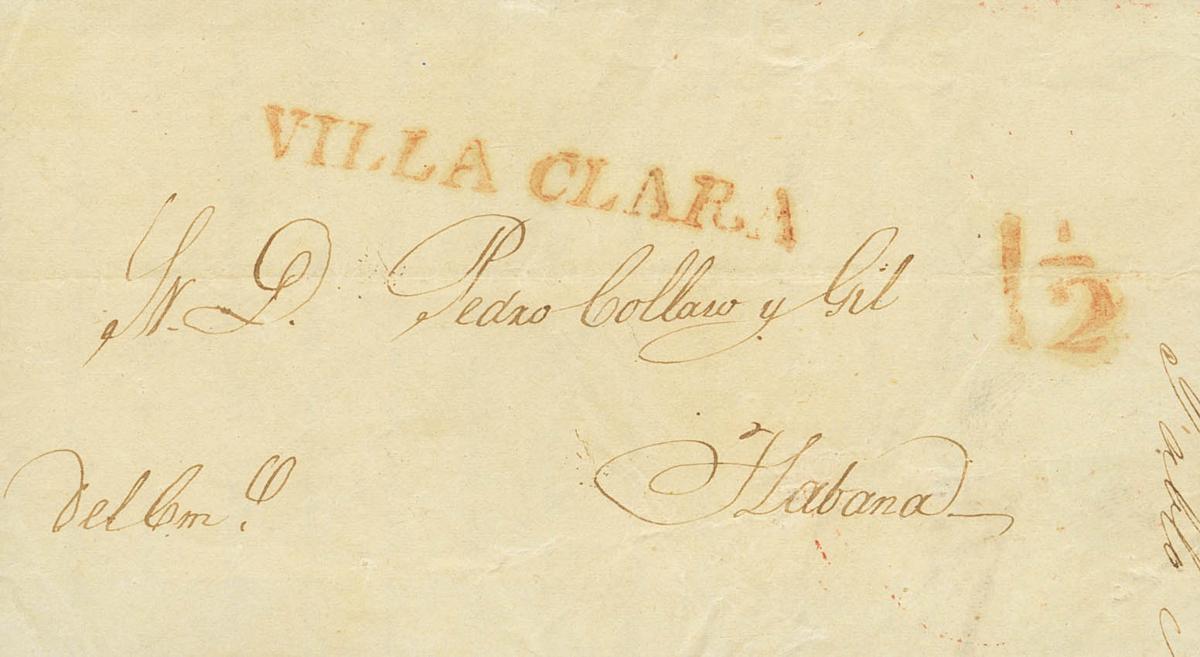 VILLA CLARA
1 1/2
Sr. D. Pedro Collazo y Gil
del Com.º
Habana